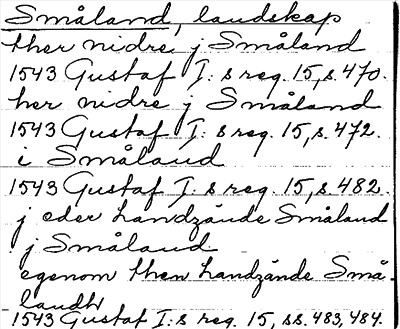 Småland, landskap
ther nidre j Småland
1543 Gustaf I:s reg. 15, s. 470.
her nidre j Småland
1543 Gustaf I:s reg. 15, s. 472.
i Småland
1543 Gustaf I:s reg. 15, s. 482.
j eder landzände Småland
j Småland
egenom then landzände Små-
landh
1543 Gustaf I:s reg. 15, ss. 483, 484.